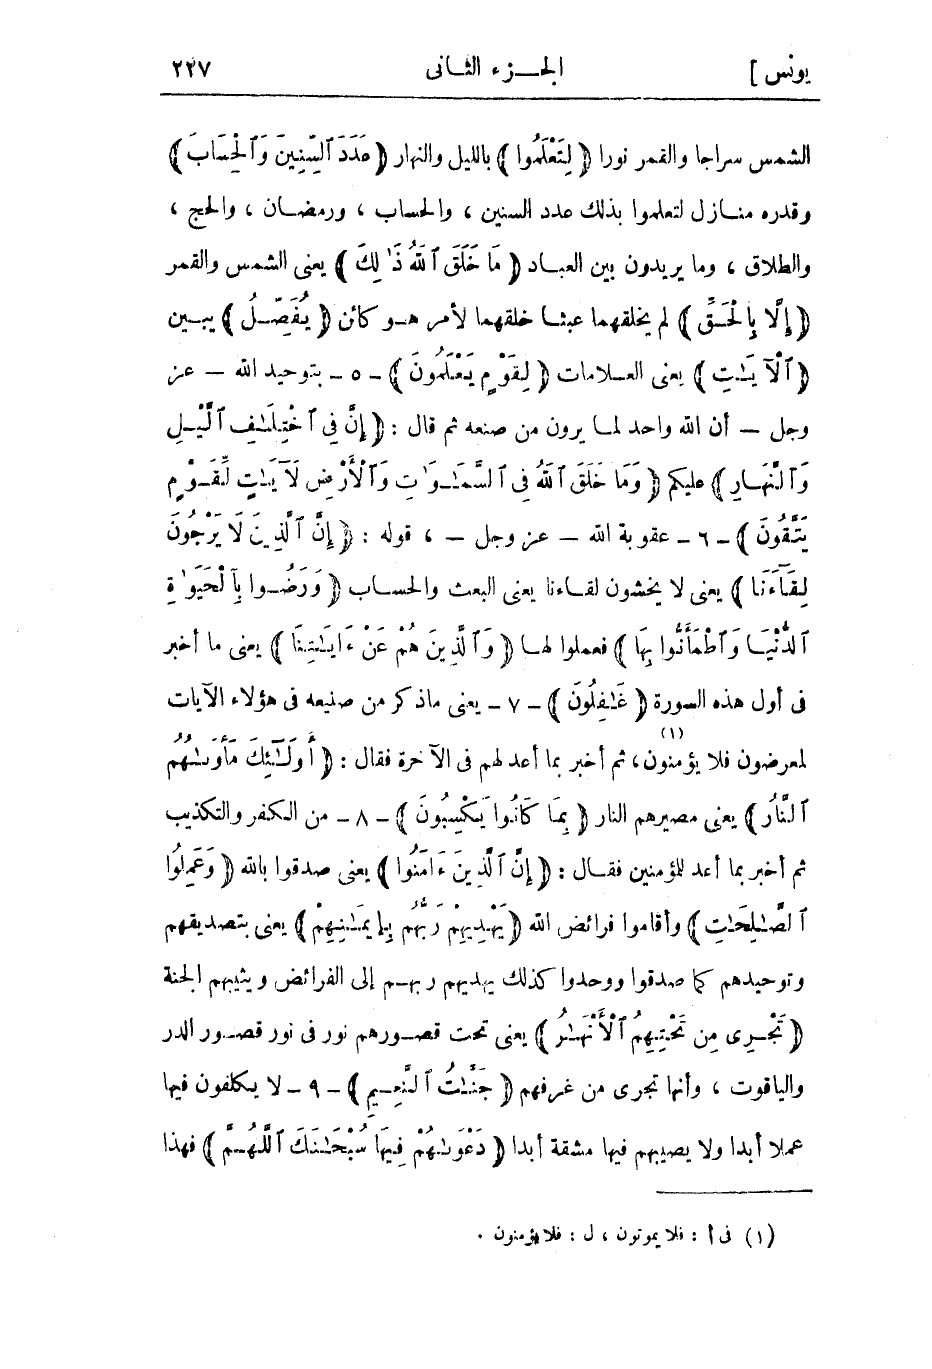 يونس ] الجـــزء الثـانى ٢٢٧
الشمس سراجا والقمر نورا ﴿ لِتَعْلَمُوا ﴾ بالليل والنهار ﴿ عَدَدَ ٱلسِّنِينَ وَٱلْحِسَابَ ﴾
وقدره منـازل لتعلموا بذلك عدد السنين ، والحساب ، ورمضـان ، والحج ،
والطلاق ، وما يريدون بين العبـاد ﴿ مَا خَلَقَ ٱللَّهُ ذَٰلِكَ ﴾ يعنى الشمس والقمر
﴿ إِلَّا بِٱلْحَـقِّ ﴾ لم يخلقهما عبثـا خلقهما لأمر هـو كائن ﴿ يُفَصِّـلُ ﴾ يبـين
﴿ ٱلْآيَـٰتِ ﴾ يعنى العـلامات ﴿ لِقَوْمٍ يَعْلَمُونَ ﴾ - ٥ - بتوحيد الله — عز
وجل — أن الله واحد لمـا يرون من صنعه ثم قال : ﴿ إِنَّ فِى ٱخْتِلَـٰفِ ٱلَّيْـلِ
وَٱلنَّهَـارِ ﴾ عليكم ﴿ وَمَا خَلَقَ ٱللَّهُ فِى ٱلسَّمَـٰوَٰتِ وَٱلْأَرْضِ لَآيَـٰتٍ لِّقَـوْمٍ
يَتَّقُونَ ﴾ - ٦ - عقوبة الله — عز وجل — ، قوله : ﴿ إِنَّ ٱلَّذِينَ لَا يَرْجُونَ
لِقَآءَنَا ﴾ يعنى لا يخشون لقـاءنا يعنى البعث والحسـاب ﴿ وَرَضُـوا بِٱلْحَيَوٰةِ
ٱلدُّنْيَـا وَٱطْمَأَنُّوا بِهَا ﴾ فعملوا لهـا ﴿ وَٱلَّذِينَ هُمْ عَنْ ءَايَـٰتِنَا ﴾ يعنى ما أخبر
فى أول هذه السورة ﴿ غَـٰفِلُونَ ﴾ - ٧ - يعنى ماذكر من صنيعه فى هؤلاء الآيات
لمعرضون فلا يؤمنون(١)، ثم أخبر بما أعد لهم فى الآخرة فقال : ﴿ أُولَـٰٓئِكَ مَأْوَىٰهُمُ
ٱلنَّارُ ﴾ يعنى مصيرهم النار ﴿ بِمَا كَانُوا يَكْسِبُونَ ﴾ - ٨ - من الكفر والتكذيب
ثم أخبر بما أعد للمؤمنين فقـال : ﴿ إِنَّ ٱلَّذِينَ ءَامَنُوا ﴾ يعنى صدقوا بالله ﴿ وَعَمِلُوا
ٱلصَّـٰلِحَـٰتِ ﴾ وأقاموا فرائض الله ﴿ يَهْدِيهِمْ رَبُّهُم بِإِيمَـٰنِهِمْ ﴾ يعنى بتصديقهم
وتوحيدهم كما صدقوا ووحدوا كذلك يهديهم ربهـم إلى الفرائض ويثيبهم الجنة
﴿ تَجْـرِى مِن تَحْتِهِمُ ٱلْأَنْهَـٰرُ ﴾ يعنى تحت قصـورهم نور فى نور قصـور الدر
والياقوت ، وأنها تجرى من غرفهم ﴿ جَنَّـٰتُ ٱلنَّعِـيمِ ﴾ - ٩ - لا يكلفون فيها
عملا أبدا ولا يصيبهم فيها مشقة أبدا ﴿ دَعْوَىٰهُمْ فِيهَا سُبْحَـٰنَكَ ٱللَّهُـمَّ ﴾ فهذا
(١) فى أ : فلا يموتون ، ل : فلا يؤمنون .